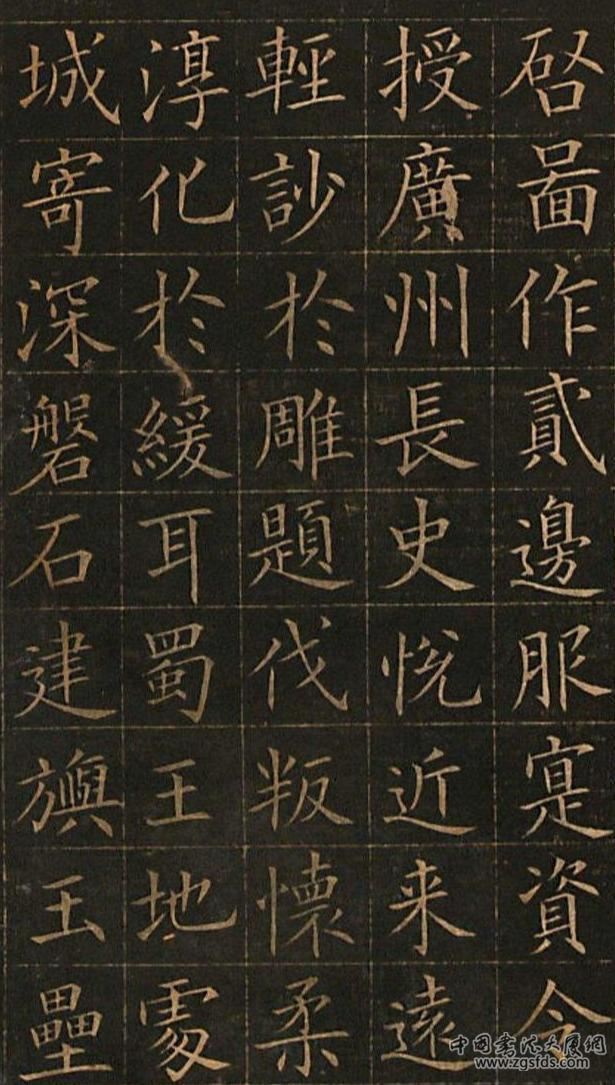 启啚作貳邊服寔資令
授廣州長史悦近来遠
輕訬於雕題伐叛懷柔
淳化於緩耳蜀王地處
城寄深磐石建旟玉壘
中国书法大展网
www.zgsfds.com